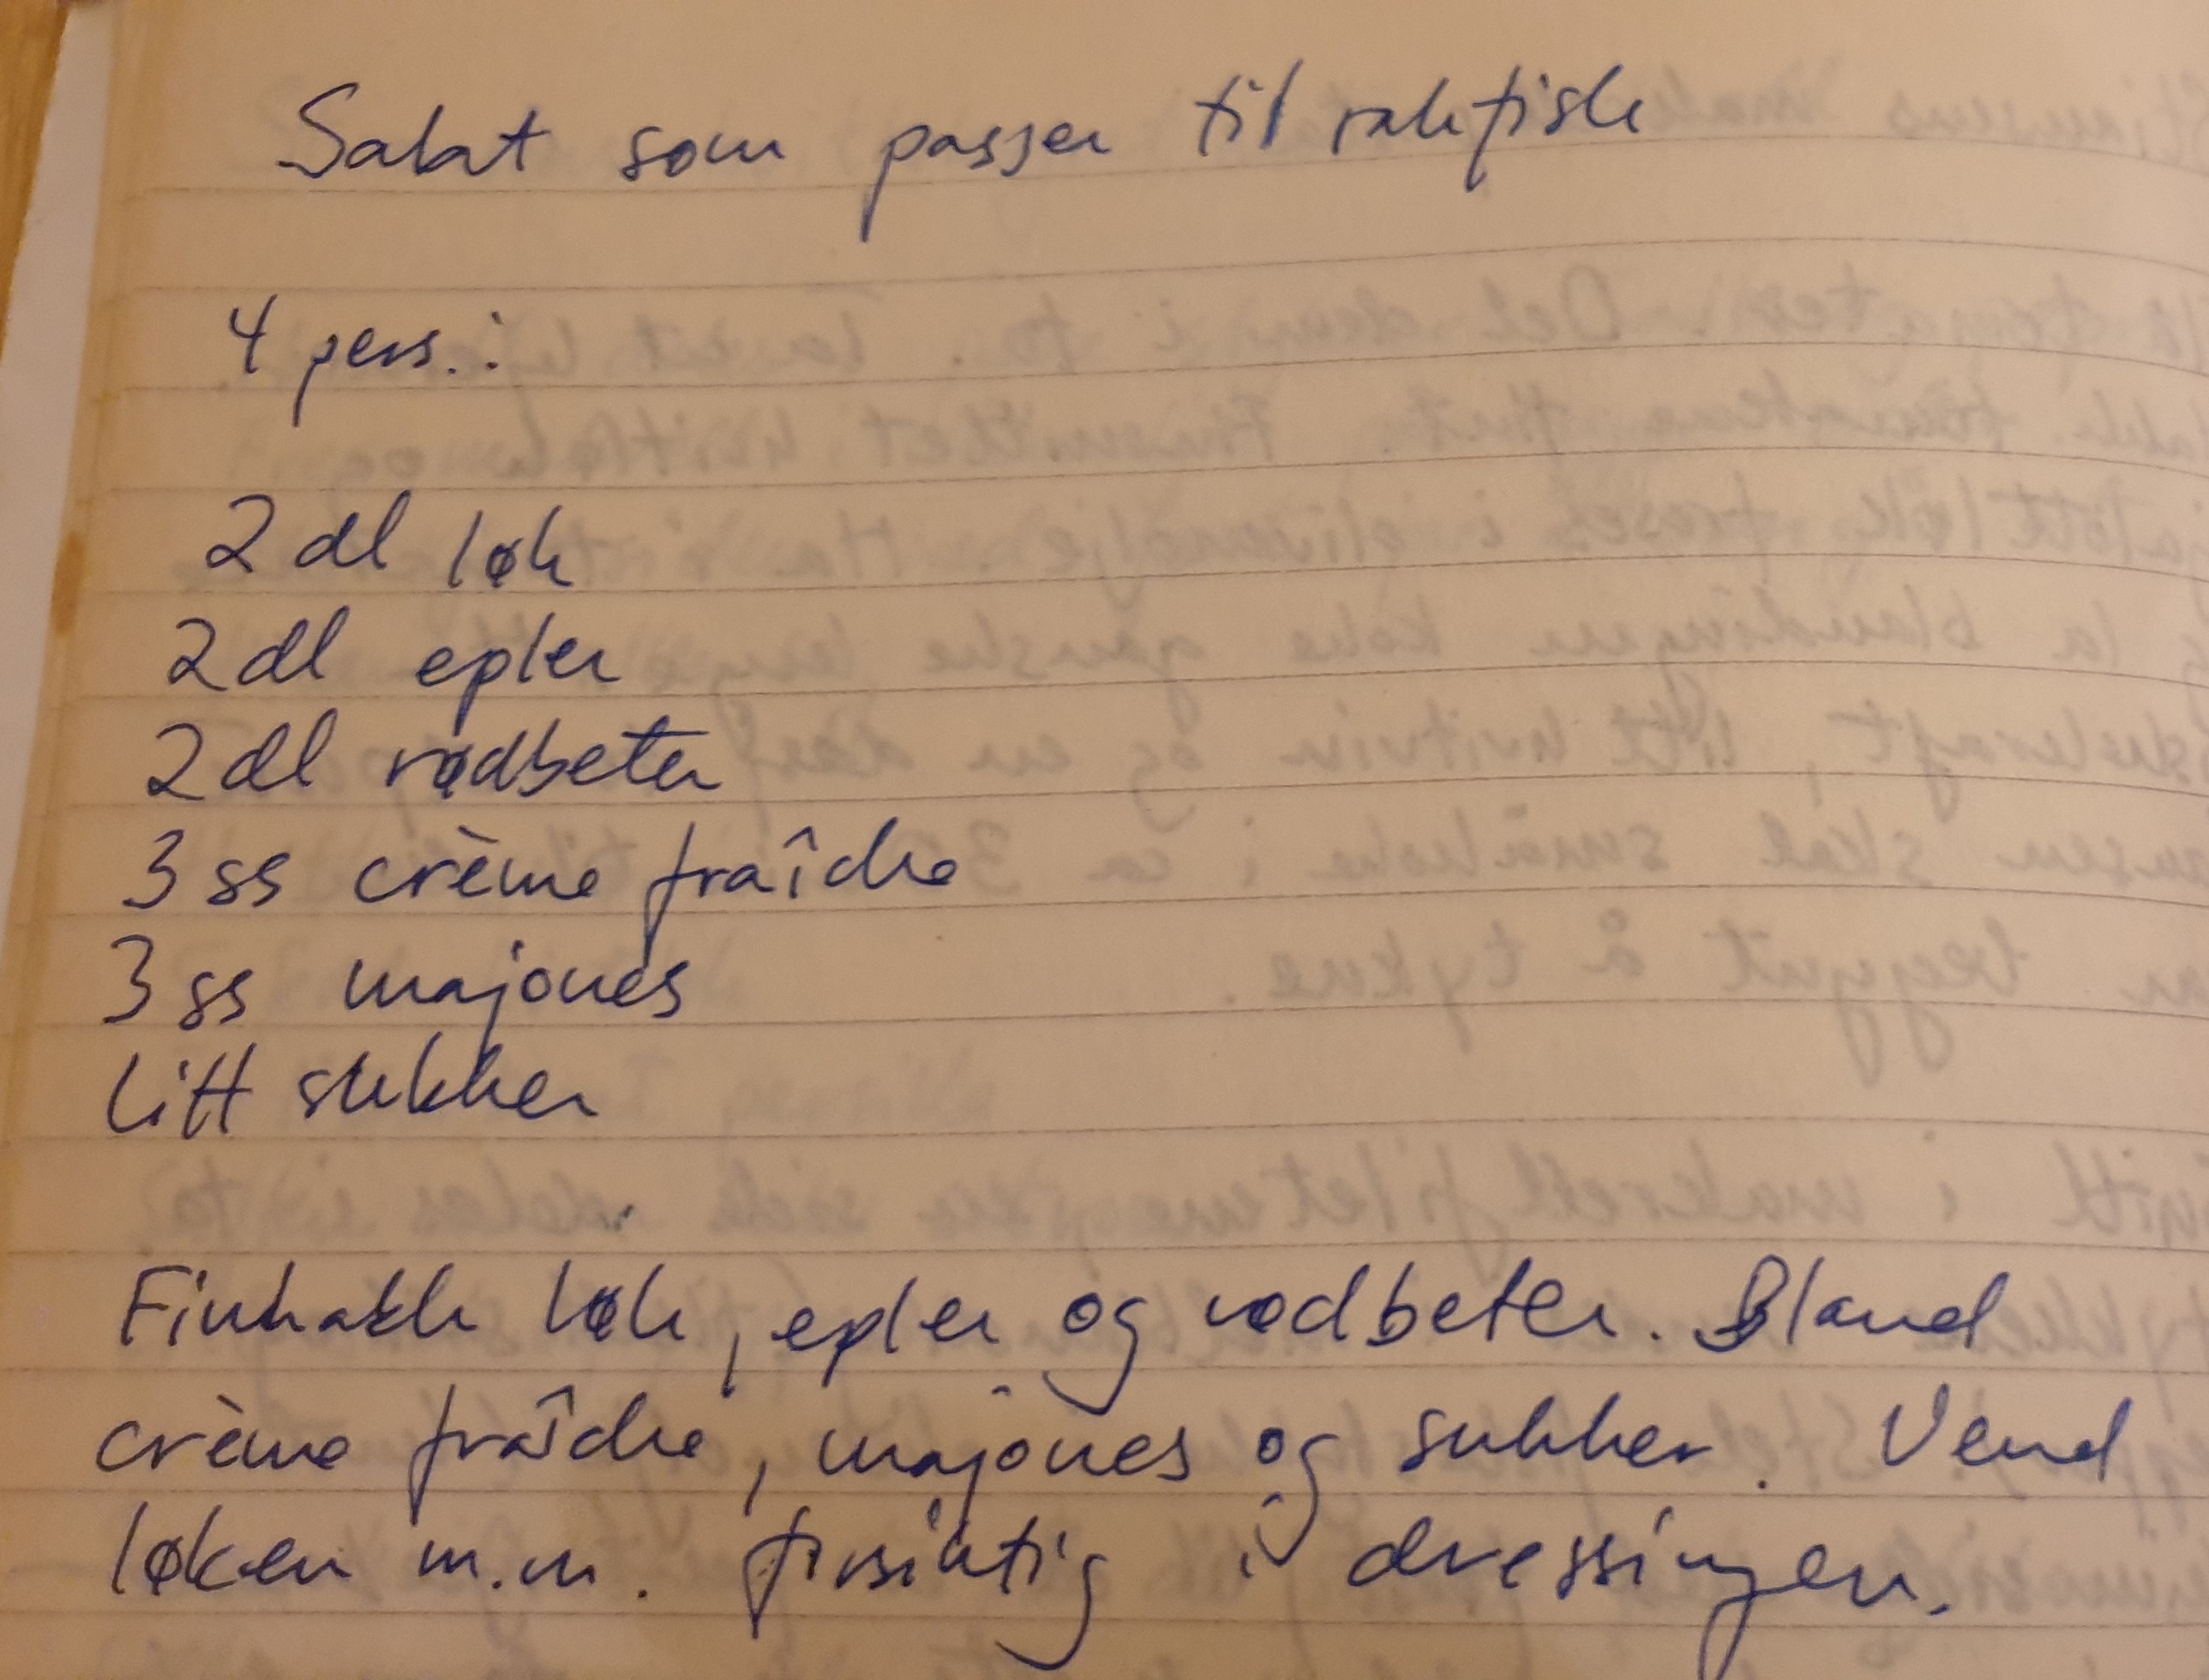 Salat som passer til rakfisk
4 pers.:
2 dl løk
2 dl epler
2 dl rødbeter
3 ss crème fraîche
3 ss majones
litt sukker
Finhakk løk, epler og rødbeter. Bland
crème fraîche, majones og sukker. Vend
løken m.m. forsiktig i dressingen.